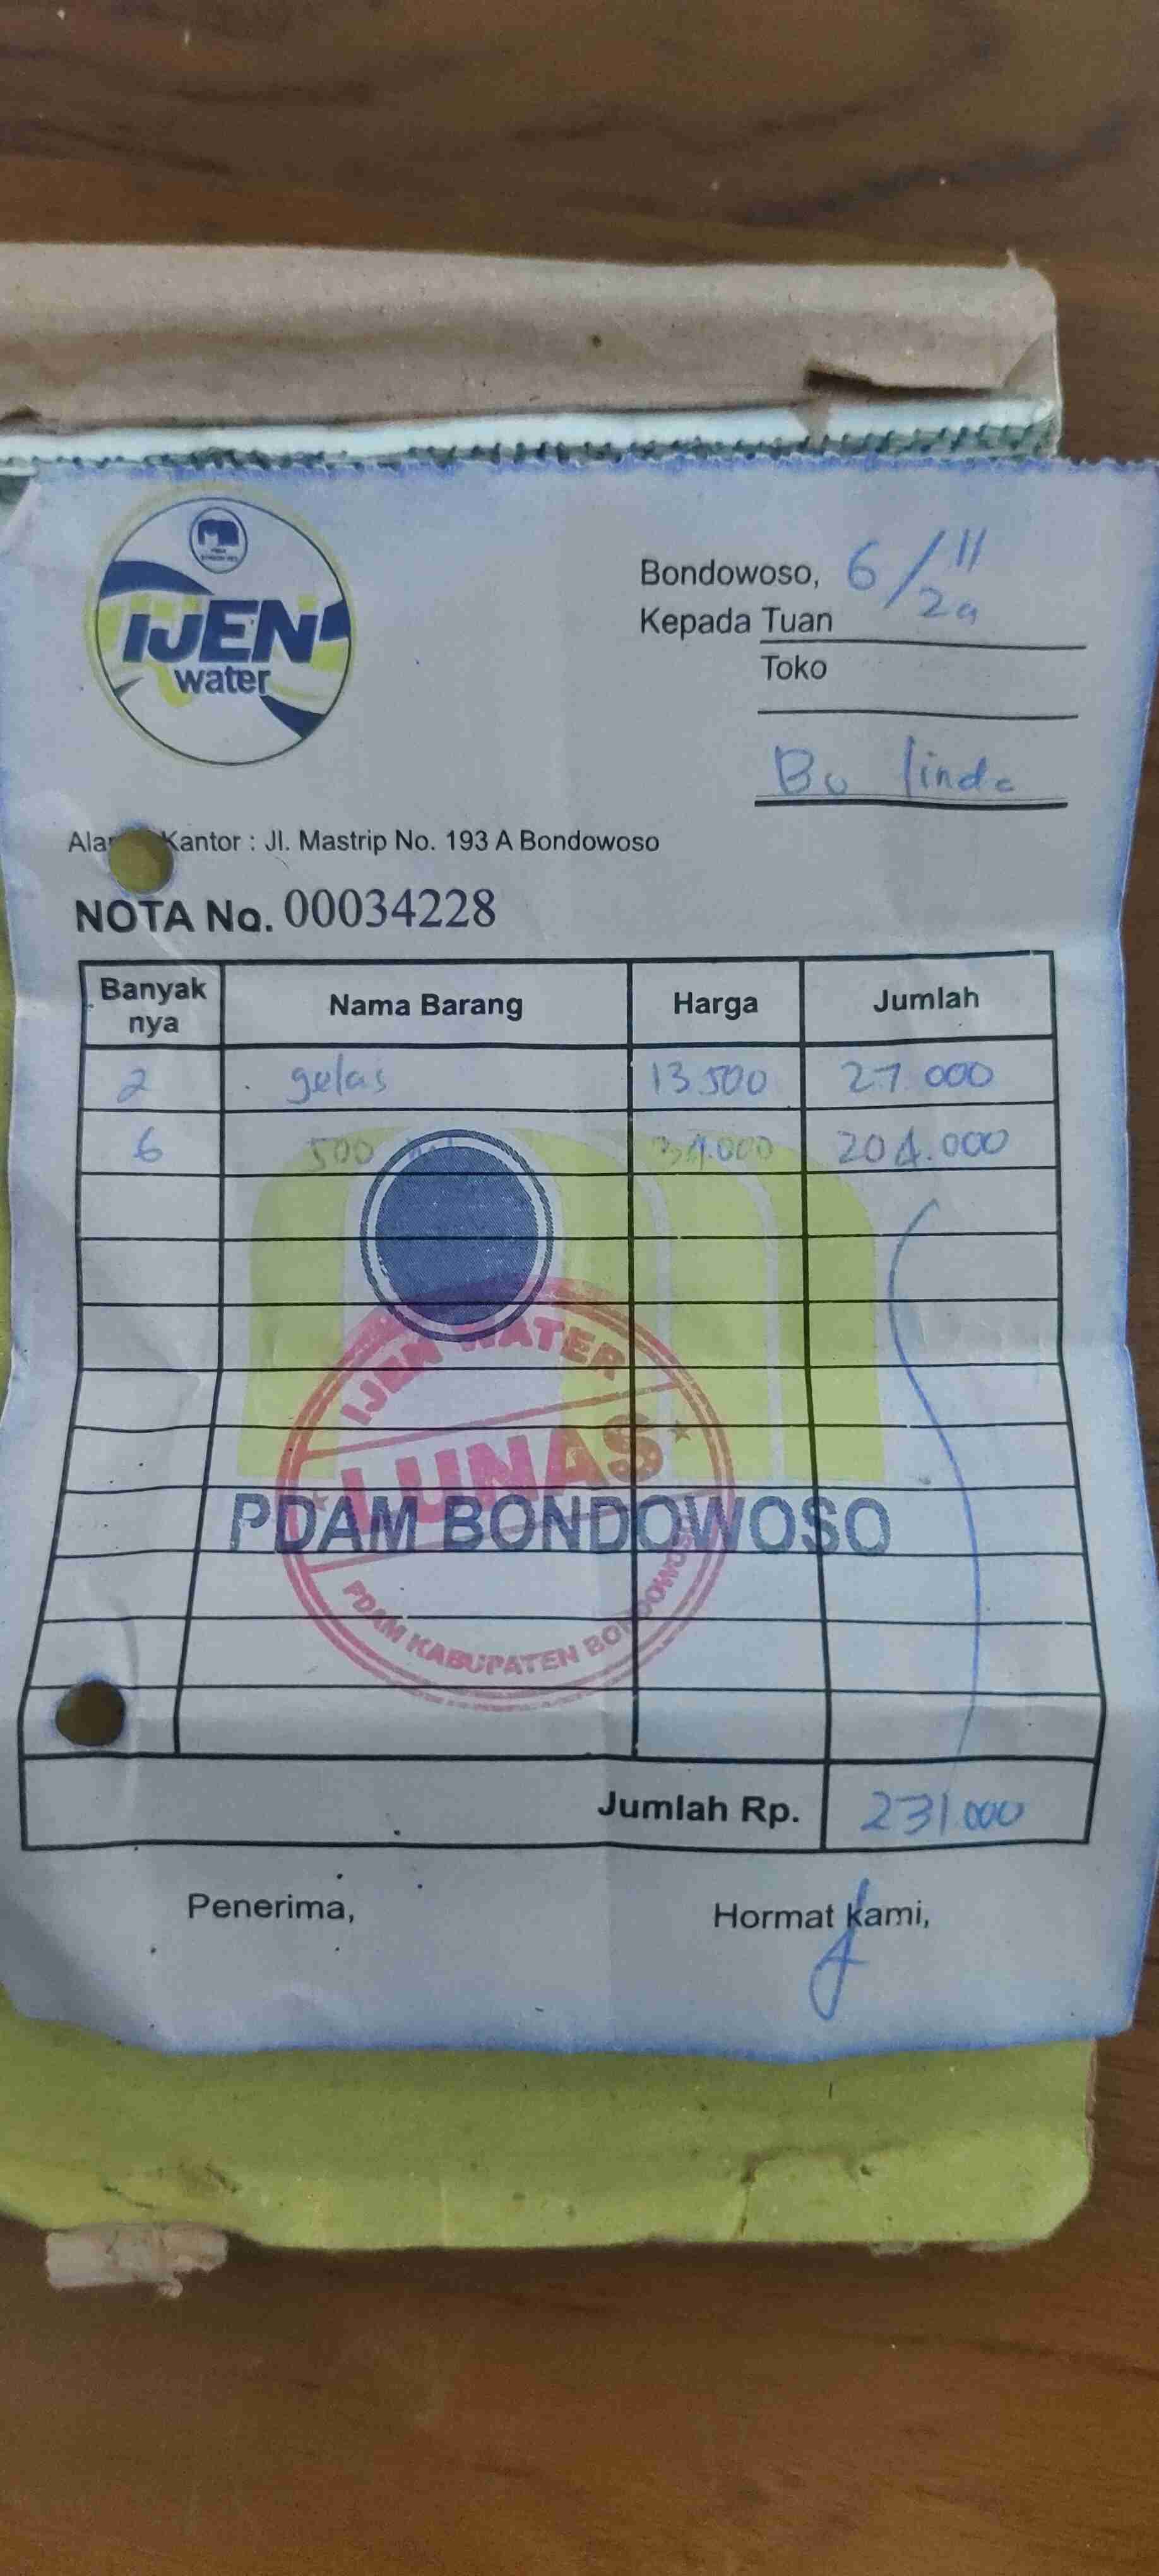 IJEN
water
Bondowoso, 6/11
24
Kepada Tuan
Toko
Bu linda
Kantor : Jl. Mastrip No. 193 A Bondowoso
NOTA No. 00034228
Banyak nya Nama Barang Harga Jumlah
2 gelas 13.500 27.000
6 500 34.000 204.000
IJEN WATER
LUNAS
PDAM BONDOWOSO
PDAM KABUPATEN BONDOWOSO
Jumlah Rp. 231.000
Penerima, Hormat kami,